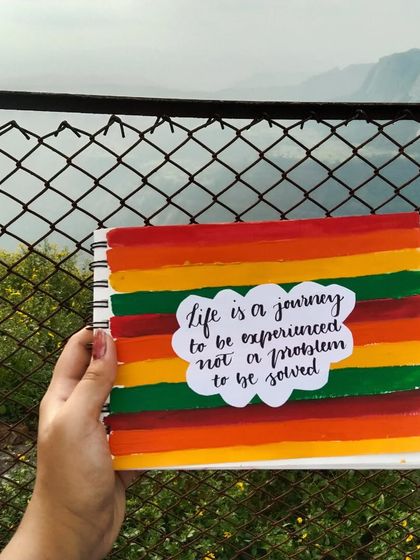 Life is a journey
to be experienced
not a problem
to be solved